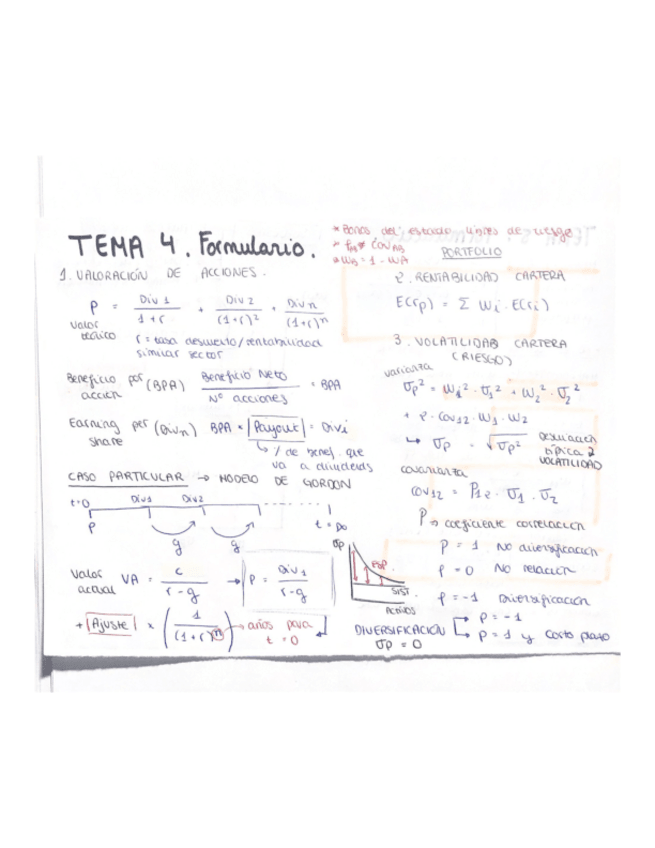 TEMA 4. Formulario.
1. VALORACIÓN DE ACCIONES.
P = Div 1 / 1+r + Div 2 / (1+r)² + Div n / (1+r)ⁿ
Valor teórico
r = tasa descuento/rentabilidad
similar sector
Beneficio por acción (BPA) Beneficio Neto / Nº acciones = BPA
Earning per share (Divn) BPA × |Payout| = Divi
↳ % de benef. que
va a dividends
CASO PARTICULAR → MODELO DE GORDON
t=0 Div1 Div2
P t = ∞
g g
Valor actual VA = C / r-g → P = Div1 / r-g
+ |Ajuste| × (1 / (1+r)ⁿ) → años para
t = 0
* Bonos del estado libres de riesgo
* ρAB ≠ COVAB
* WB = 1 - WA
PORTFOLIO
2. RENTABILIDAD CARTERA
E(rp) = Σ Wi · E(ri)
3. VOLATILIDAD CARTERA
(RIESGO)
varianza
σp² = W1² · σ1² + W2² · σ2²
+ 2 · COV12 · W1 · W2
↳ σp = √σp² Desviación
típica
VOLATILIDAD
covarianza
COV12 = ρ12 · σ1 · σ2
ρ → coeficiente correlación
ρ = 1 No diversificación
ρ = 0 No relación
ρ = -1 Diversificación
σp
ESP.
SIST.
Activos
DIVERSIFICACIÓN → ρ = -1
σp = 0 → ρ = 1 y corto plazo